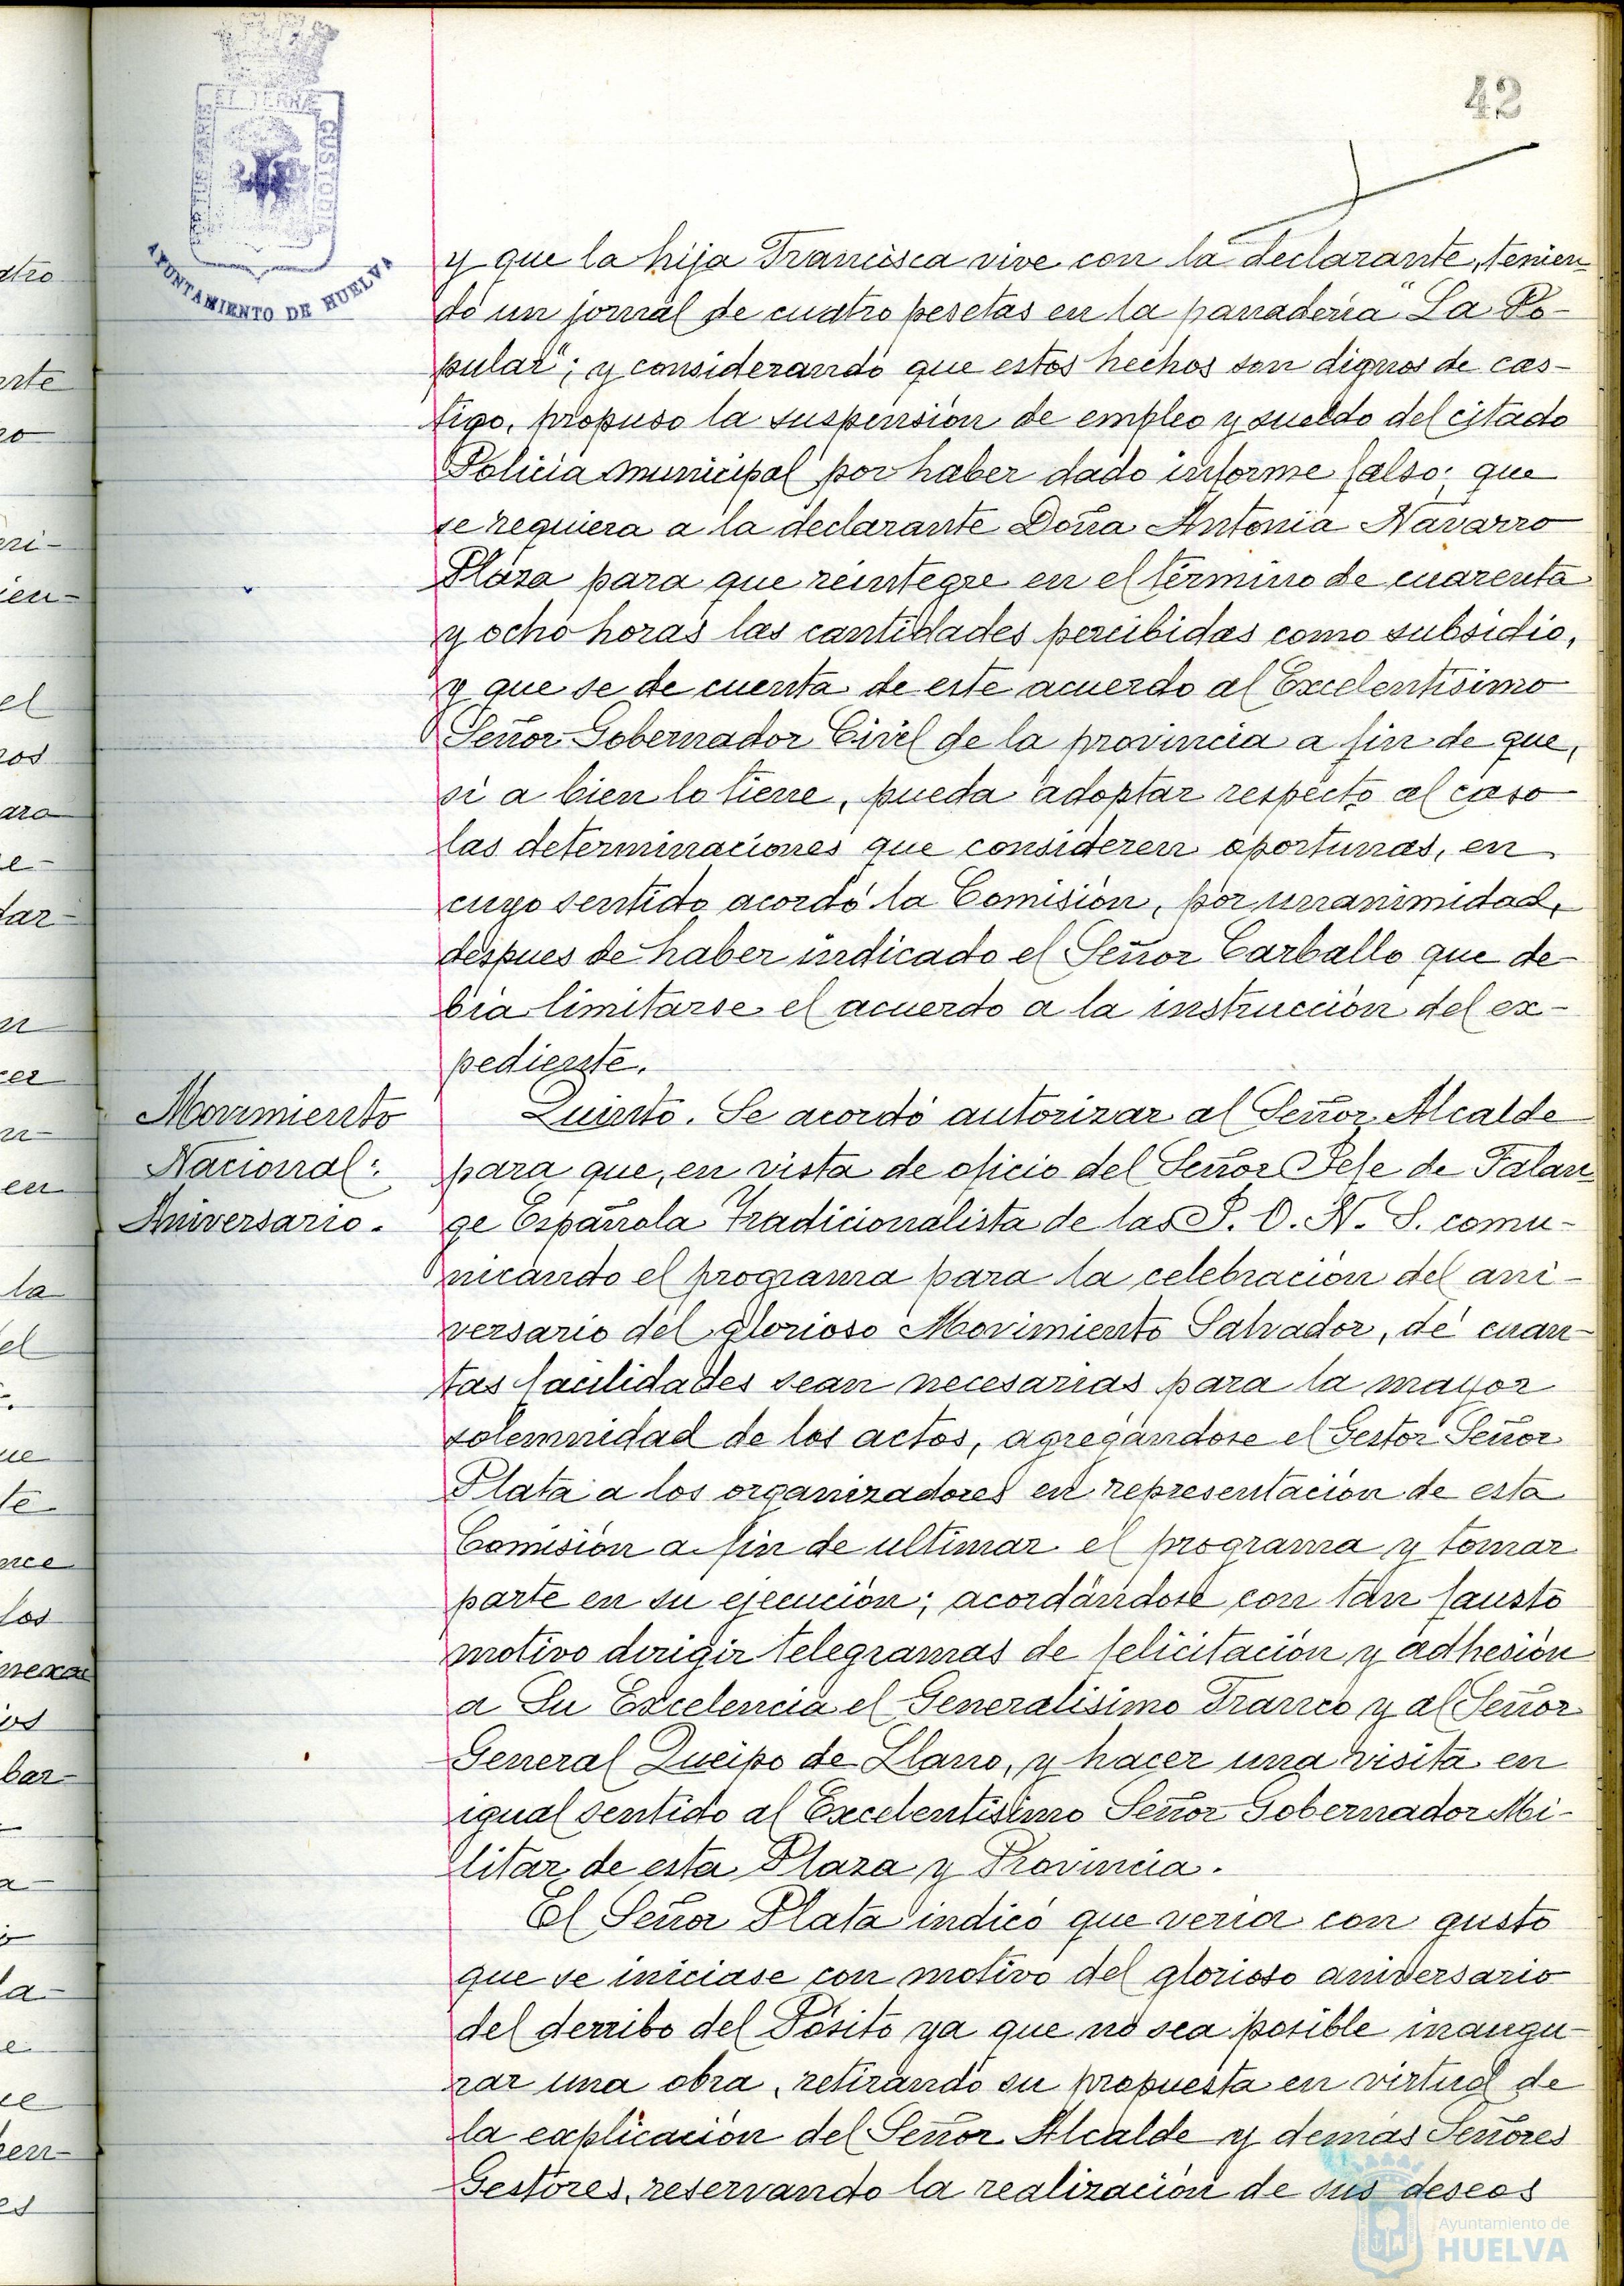 42
AYUNTAMIENTO DE HUELVA
y que la hija Francisca vive con la declarante, tenien-
do un jornal de cuatro pesetas en la panadería "La Po-
pular"; y considerando que estos hechos son dignos de cas-
tigo, propuso la suspensión de empleo y sueldo del citado
Policia municipal por haber dado informe falso; que
se requiera a la declarante Doña Antonia Navarro
Plaza para que reintegre en el término de cuarenta
y ocho horas las cantidades percibidas como subsidio,
y que se de cuenta de este acuerdo al Excelentisimo
Señor Gobernador Civil de la provincia a fin de que,
si a bien lo tiene, pueda adoptar respecto al caso
las determinaciones que consideren oportunas, en
cuyo sentido acordó la Comisión, por unanimidad,
despues de haber indicado el Señor Carballo que de-
bia limitarse el acuerdo a la instrucción del ex-
pediente.
Movimiento
Nacional:
Aniversario.
Quinto. Se acordó autorizar al Señor Alcalde
para que, en vista de oficio del Señor Jefe de Falan
ge Española Tradicionalista de las J. O. N. S. comu-
nicando el programa para la celebración del ani-
versario del glorioso Movimiento Salvador, dé cuan-
tas facilidades sean necesarias para la mayor
solemnidad de los actos, agregándose el Gestor Señor
Plata a los organizadores en representación de esta
Comisión a fin de ultimar el programa y tomar
parte en su ejecución; acordándose con tan fausto
motivo dirigir telegramas de felicitación y adhesión
a Su Excelencia el Generalisimo Franco y al Señor
General Queipo de Llano, y hacer una visita en
igual sentido al Excelentisimo Señor Gobernador Mi-
litar de esta Plaza y Provincia.
El Señor Plata indicó que veria con gusto
que se iniciase con motivo del glorioso aniversario
del derribo del Pósito ya que no sea posible inaugu-
rar una obra, retirando su propuesta en virtud de
la explicación del Señor Alcalde y demás Señores
Gestores, reservando la realización de sus deseos
Ayuntamiento de
HUELVA